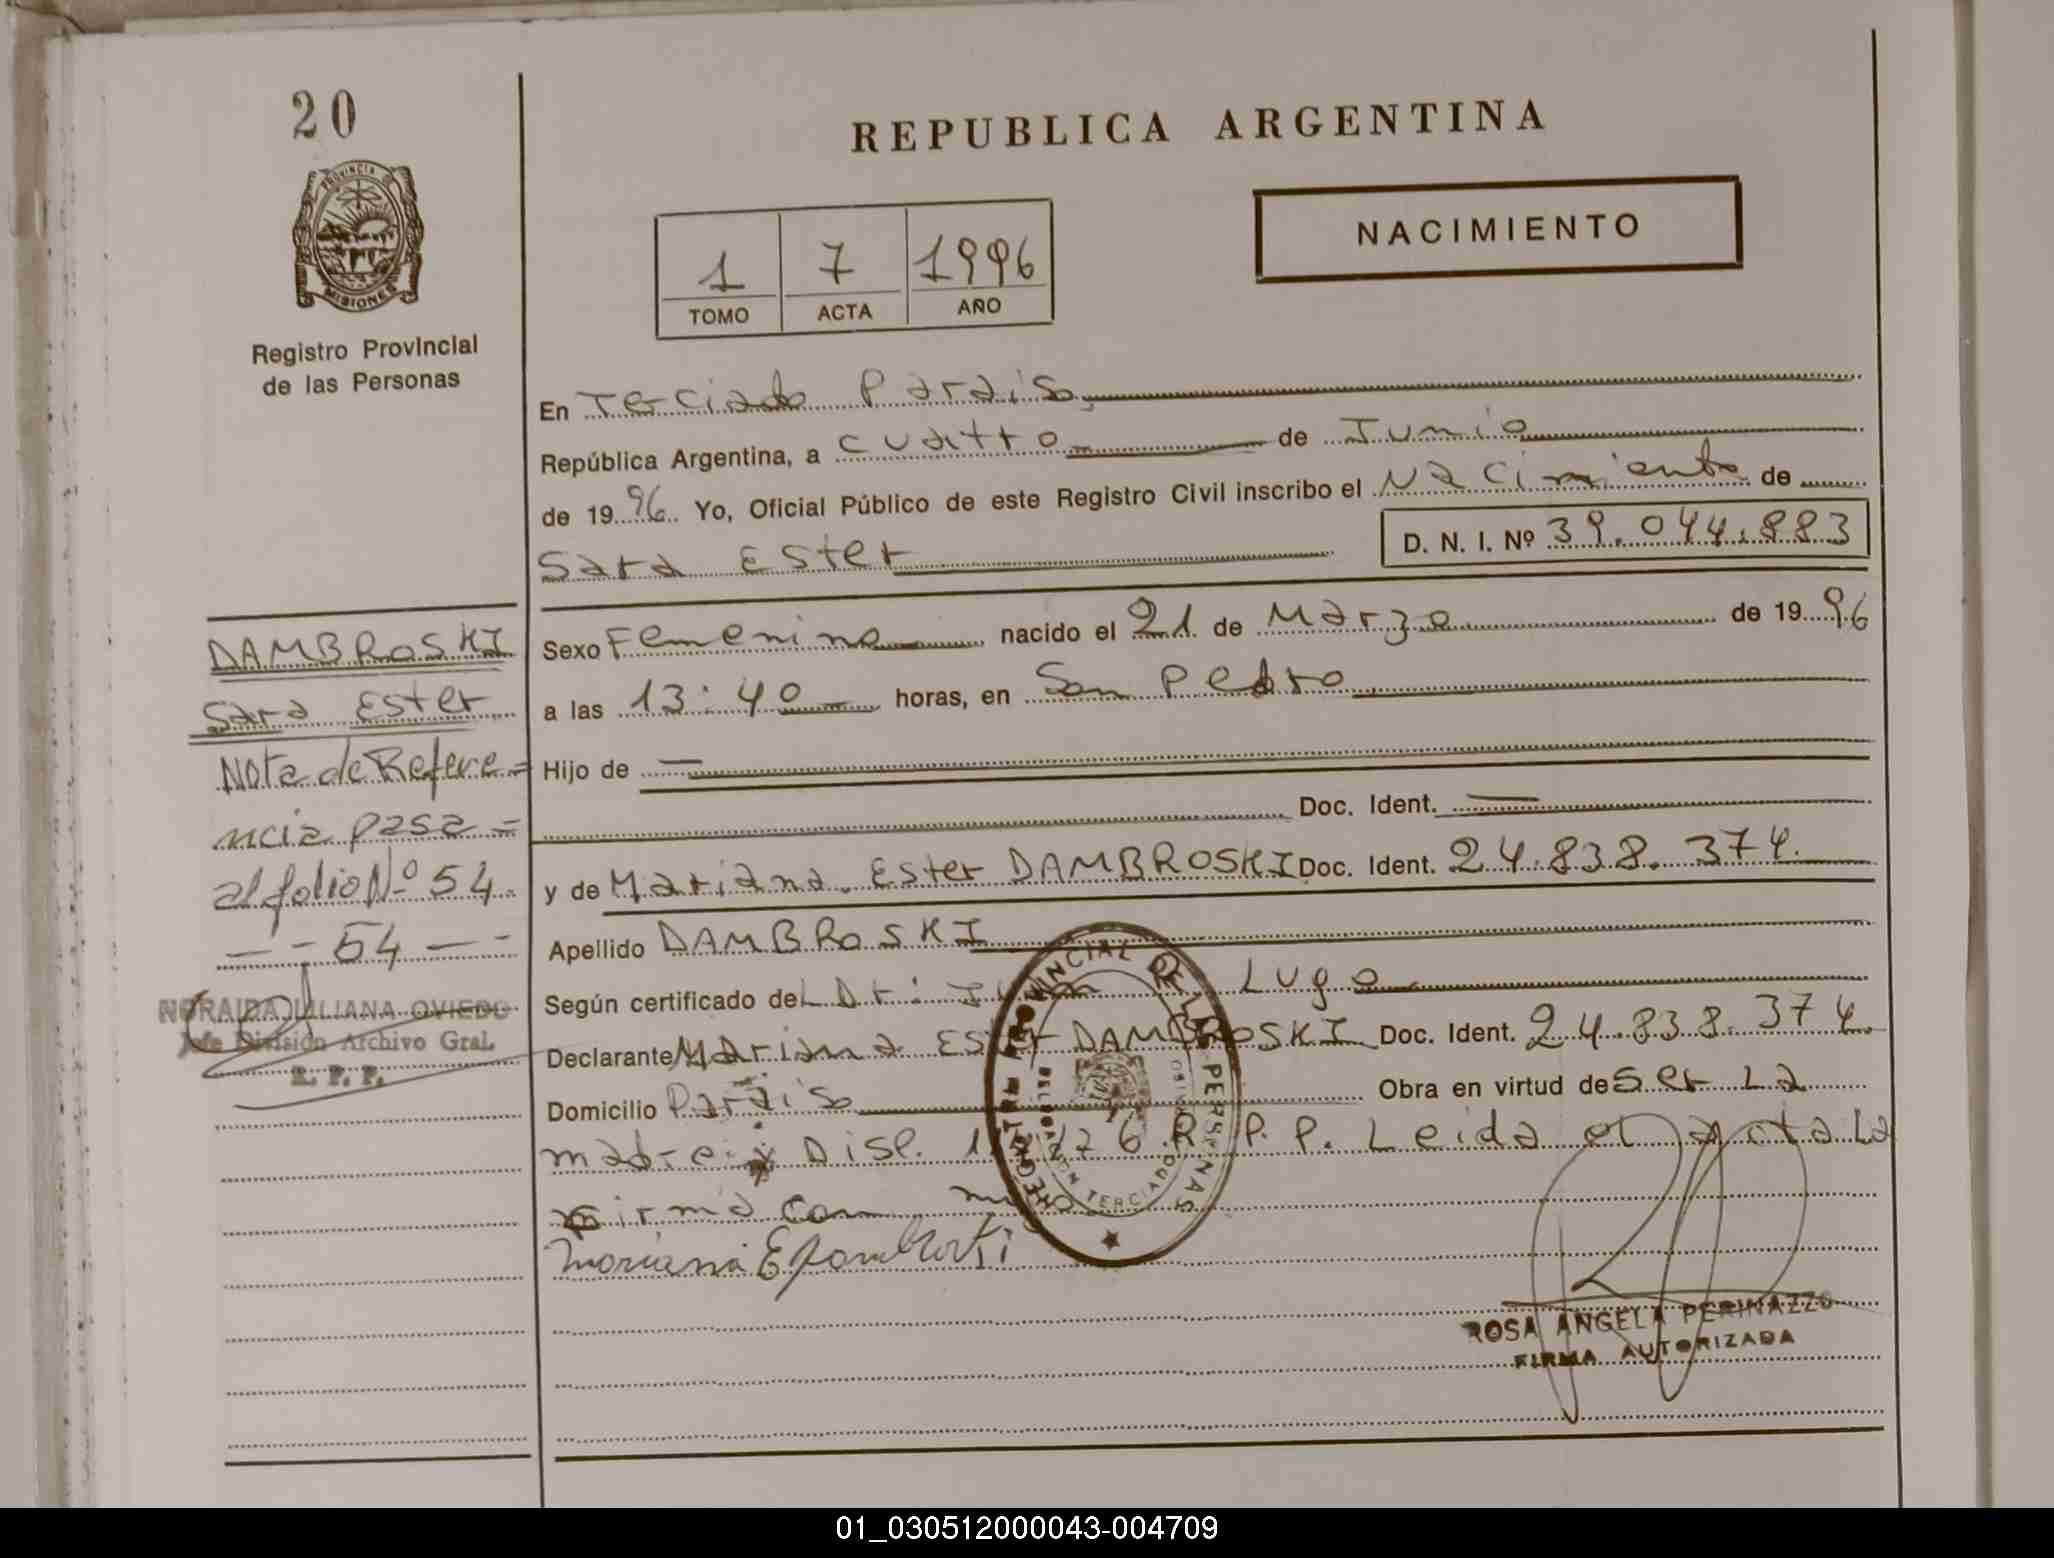 20
PROVINCIA DE
MISIONES
Registro Provincial
de las Personas
REPUBLICA ARGENTINA
NACIMIENTO
1 7 1996
TOMO ACTA AÑO
En Terciado Paraiso
República Argentina, a cuatro de Junio
de 1996 Yo, Oficial Público de este Registro Civil inscribo el Nacimiento de
Sara Ester D. N. I. Nº 39.044.883
DAMBROSKI
Sara Ester
Nota de Refere=
ncia pasa=
al folio Nº 54
--54--
NORAIDA JULIANA OVIEDO
Jefe División Archivo Gral.
R. P. P.
Sexo Femenino nacido el 21 de Marzo de 1996
a las 13:40 horas, en San Pedro
Hijo de —
Doc. Ident. —
y de Mariana Ester DAMBROSKI Doc. Ident. 24.838.374.
Apellido DAMBROSKI
Según certificado del Dr: Juan R Lugo
Declarante Mariana Ester DAMBROSKI Doc. Ident. 24.838.374
Domicilio Paraiso Obra en virtud de Ser La
madre y Disp. 126 R.P.P. Leida el acta La
firma con
REGISTRO PROVINCIAL DE LAS PERSONAS
ROSA ANGELA PERINAZZO
FIRMA AUTORIZADA
01_030512000043-004709